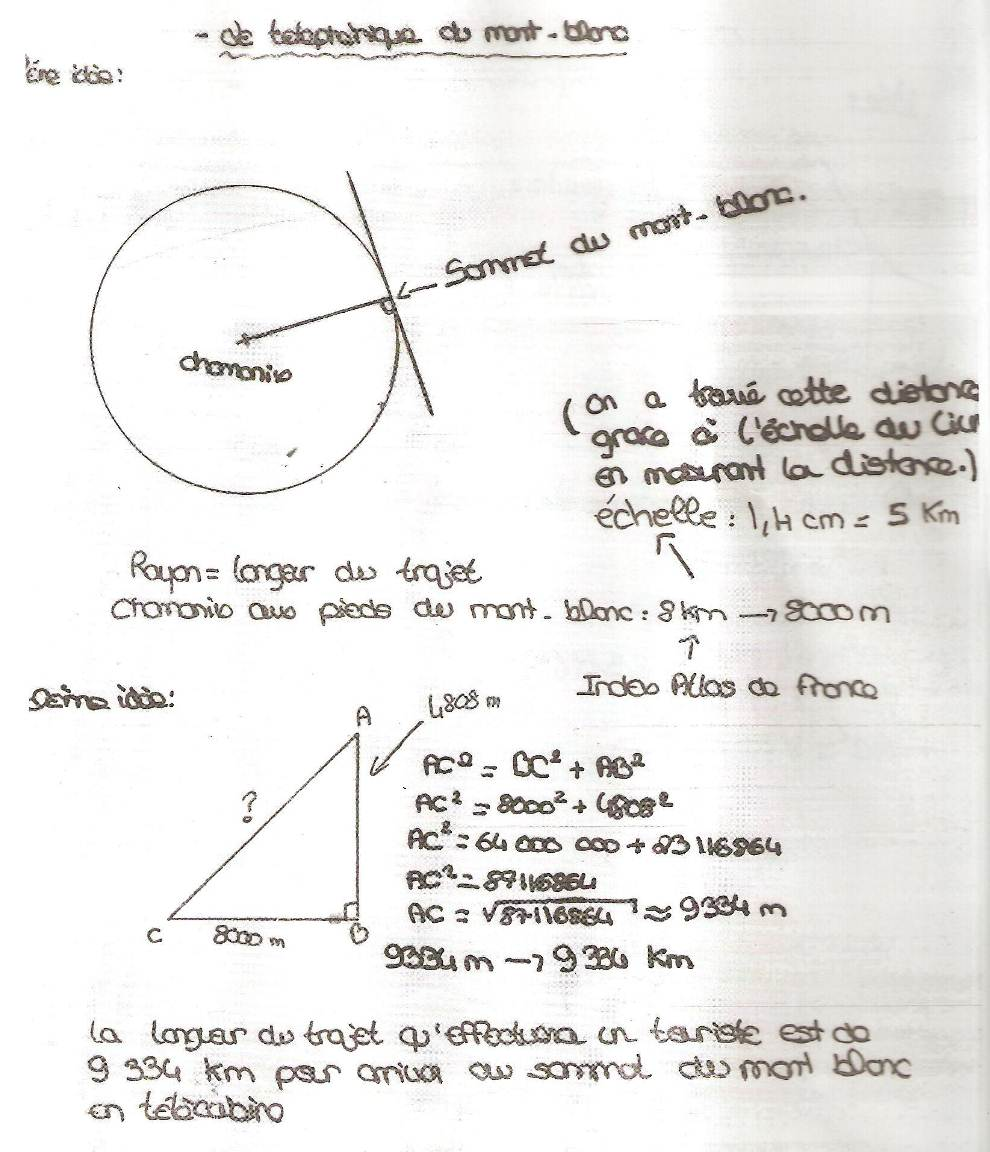 - de telephérique du mont-blanc
1ère idée:
Sommet du mont-blanc.
chamonix
(on a trouvé cette distance
grace à l'échelle du
en mesurant la distance.)
échelle: 1,4 cm = 5 Km
Rayon = longer du trajet
Chamonix aux pieds du mont-blanc: 8 km → 8000 m
Index Atlas de France
2ème idée:
A
4808 m
?
AC² = BC² + AB²
AC² = 8000² + 4808²
AC² = 64 000 000 + 23 116864
AC² = 87116864
AC = √87116864 ≈ 9334 m
C
8000 m
B
9334 m → 9 334 Km
la longuer du trajet qu'effectuera un touriste est de
9 334 km pour arriver au sommet du mont blanc
en télécabine